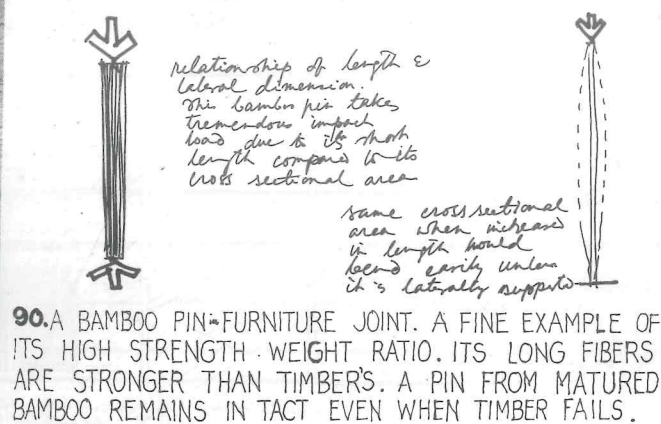 relationship of length &
lateral dimension.
This bamboo pin takes
tremendous impact
load due to its short
length compared to its
cross sectional area
same cross sectional
area when increased
in length would
bend easily unless
it is laterally supported
90. A BAMBOO PIN-IN-FURNITURE JOINT. A FINE EXAMPLE OF
ITS HIGH STRENGTH-WEIGHT RATIO. ITS LONG FIBERS
ARE STRONGER THAN TIMBER'S. A PIN FROM MATURED
BAMBOO REMAINS IN TACT EVEN WHEN TIMBER FAILS.